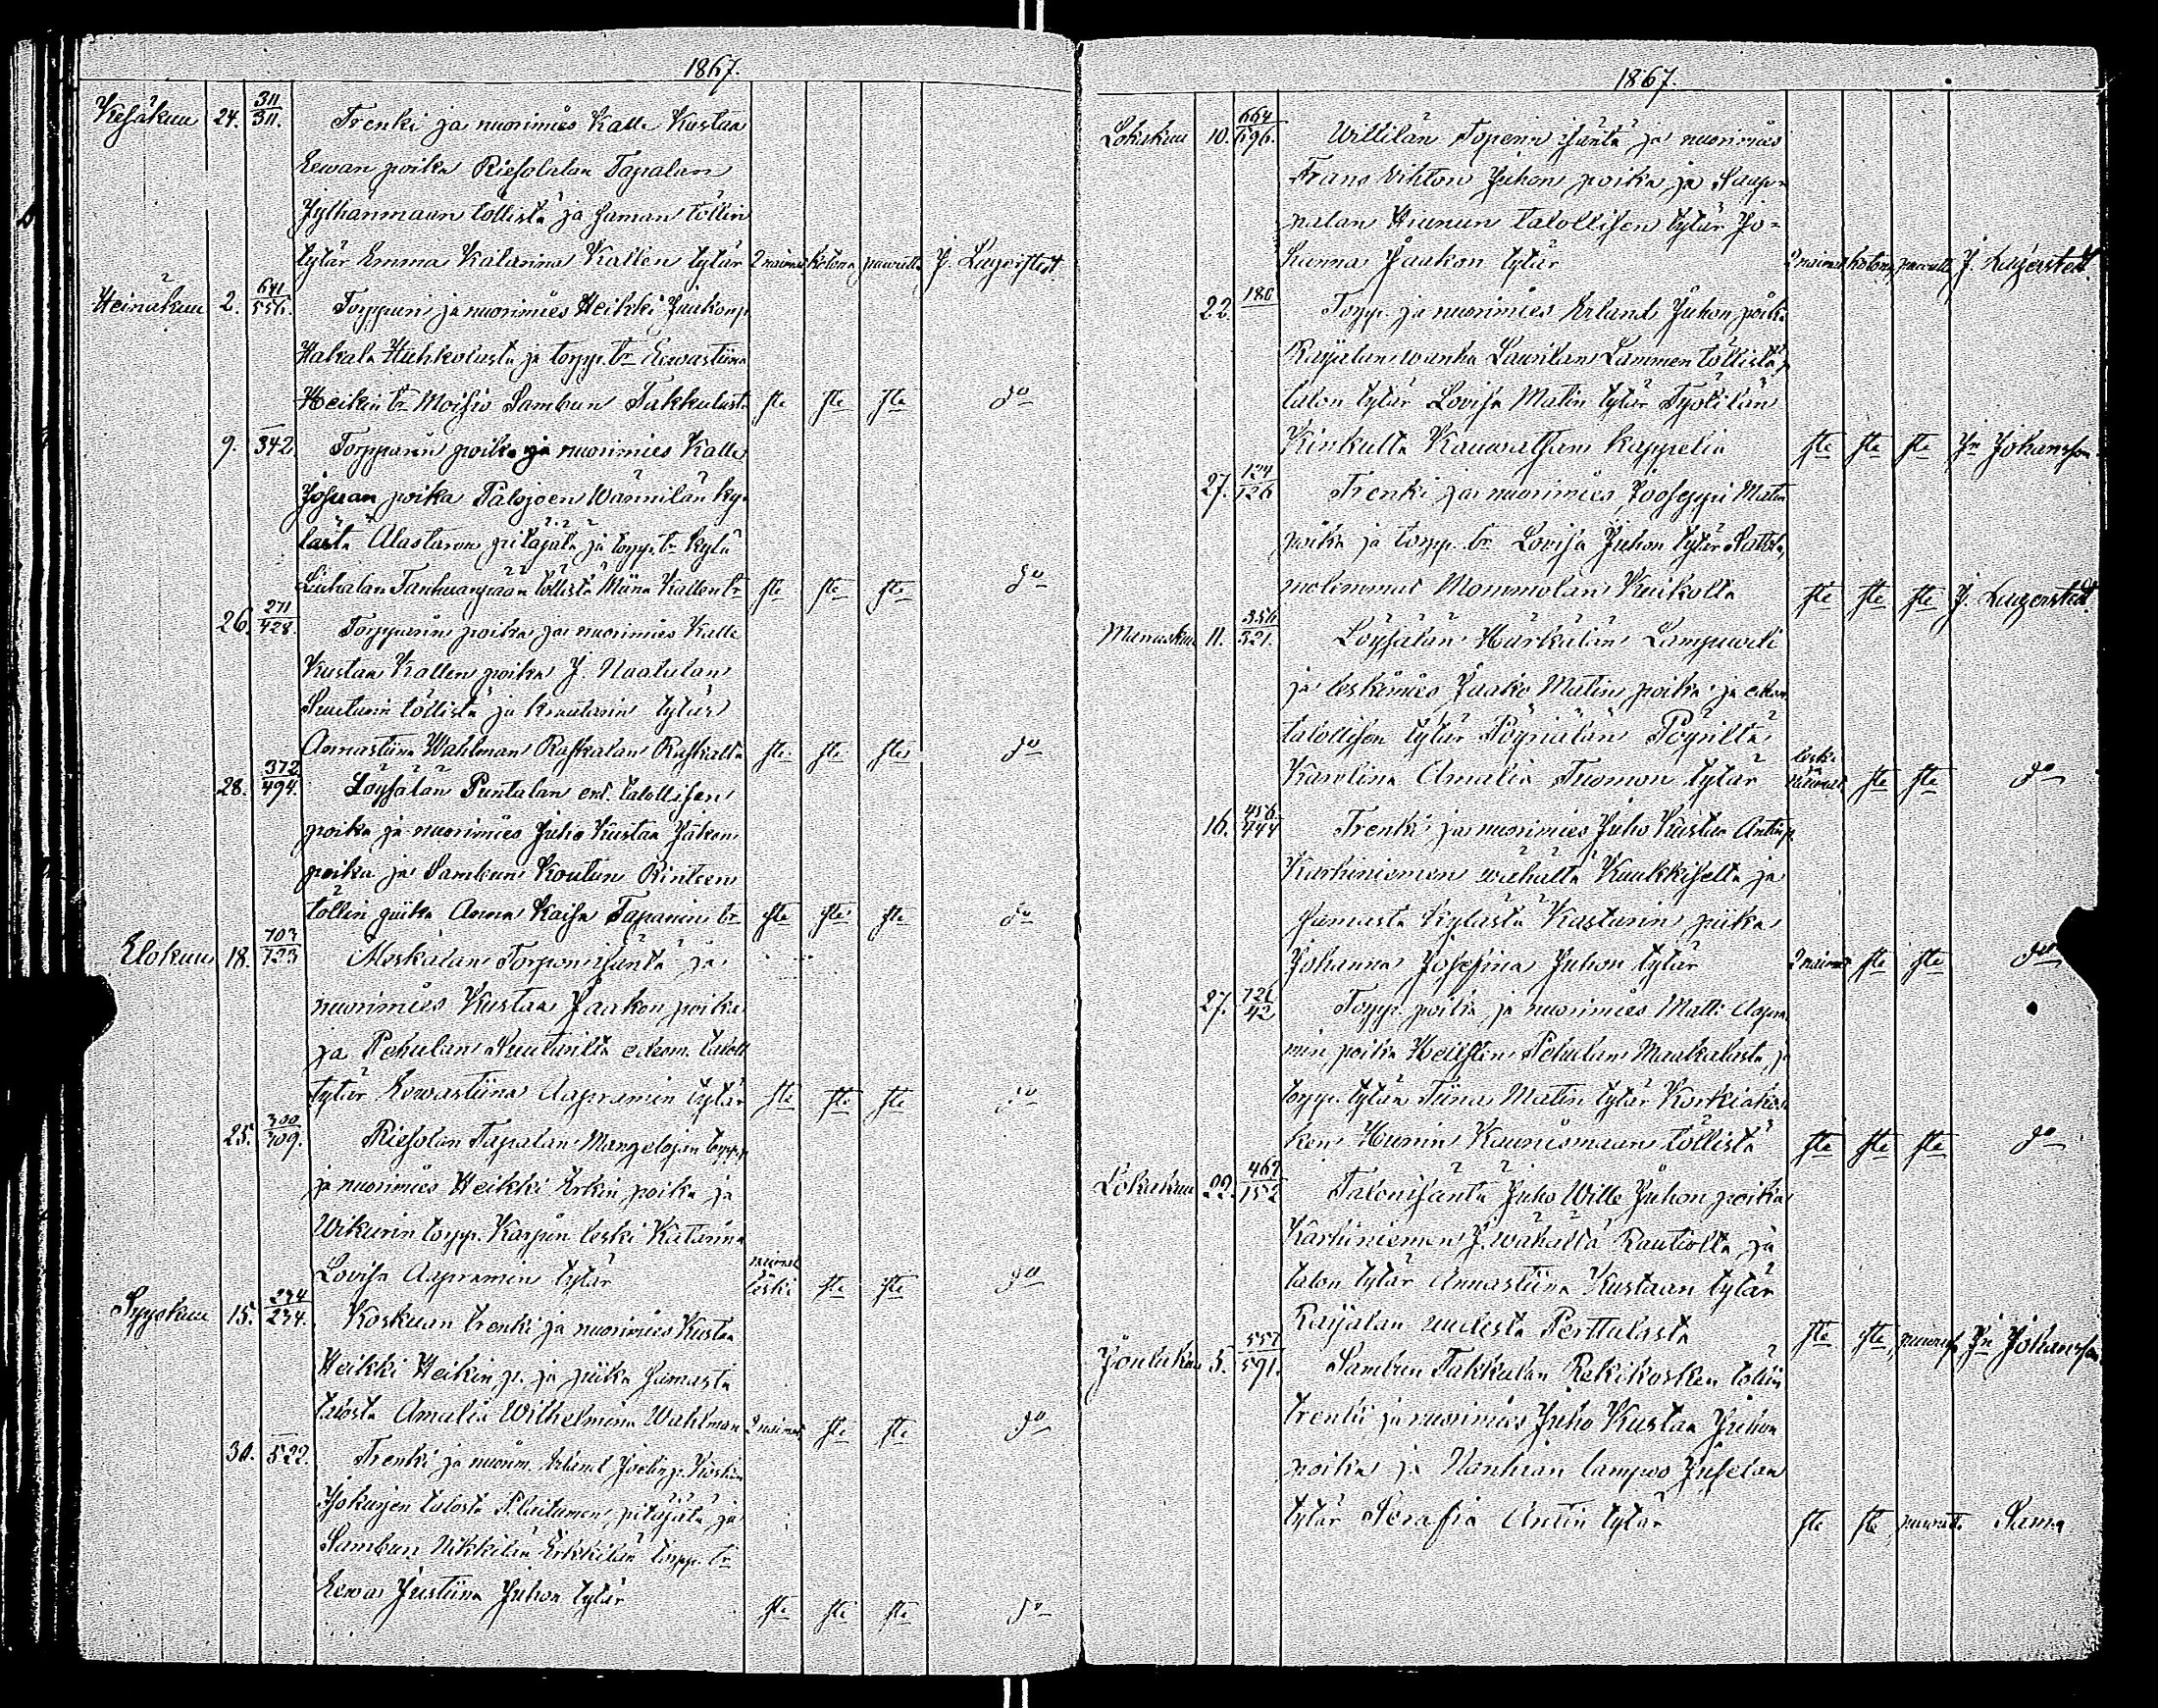 1867.
Kesäkuu 24. 311/311. Trenki ja nuorimies Kalle Kustaa
Eewan poika Riesolalan Tapalan
Jylhänmaan töllistä ja saman töllin
tytär Emma Katarina Kallen tytär 2 naimat kotona puwulla J. Lagerstedt
Heinäkuu 2. 641/556. Torppari ja nuorimies Heikki Jaakonp.
Hakala Huhkolasta ja torpp. tr Eewastiina
Heikin tr Moisio Sambun Takkulasta ste ste ste do
9. 342. Torpparin poika ja nuorimies Kalle
Josuan poika Palojoen Wännilän ky-
lästä Alastaron pitäjätä ja torpp. tr Kylä
Liuhalan Tanhuanpään töllistä Miina Kallen tr ste ste ste do
26. 271/428. Torpparin poika ja nuorimies Kalle
Kustaa Kallen poika J. Naatulan
Suutarin töllistä ja kraatarin tytär
Annastiina Wahlman Raskalan Raskalta ste ste ste do
28. 372/494. Löysälän Puntalan ent. talollisen
poika ja nuorimies Juho Kustaa Jakon
poika ja Sambun Koutun Rinteen
töllin piika Anna Kaisa Tapanin tr ste ste ste do
Elokuu 18. 703/723 Meskälän Torpon isäntä ja
nuorimies Kustaa Jaakon poika
ja Pehulan Suutarilta edesm. taloll
tytär Eewastiina Aapramin tytär ste ste ste do
25. 300/309. Riesolan Tapalan Mangelojan torpp.
ja nuorimies Heikki Erkin poika ja
Wikurin torpp. Karpin leski Katarina
Lovisa Aapramin tytär naimat leski ste ste do
Syyskuu 15. 234/234. Koskuan trenki ja nuorimies Kustaa
Heikki Heikin p. ja piika samasta
talosta Amalia Wilhelmina Wahlman 2 naimat ste ste do
30. 522. Trenki ja nuorim. Erland Joelin p.
talosta pitäjätä ja
Sambun Nikkilän Erkkilän torpp. tr
Eewa Justiina Juhon tytär ste ste ste do
1867.
Lokakuu 10. 664/696. Willilän Topenin isäntä ja nuorimies
Frans Wihton Juhon poika ja Saup-
natan Hunun talollisen tytär Jo-
hanna Jaakon tytär 2 naimat kotona puwulla J. Lagerstedt.
22. 180 Torpp. ja nuorimies Erland Juhon poika
Raijalan wanha Laurilan Lammen töllistä ja
talon tytär Lovisa Matin tytär Työtilän
Kinkulta Kauwatsan kappelia ste ste ste Jn Johansson
27. 124/126 Trenki ja nuorimies Jooseppi Matin
poika ja torpp. tr Lovisa Juhon tytär
molemmat Mommolan Kuikolta ste ste ste J. Lagerstedt.
Marraskuu 11. 356/321. Löysälän Härkälän Lampuoti
ja leskimies Jaako Matin poika ja edesm
talollisen tytär Pöyriälän Pöyriltä
Karolina Amalia Tuomon tytär leski naimat ste ste do
16. 456/444 Trenki ja nuorimies Juho Kustaa Antinp.
Karhiniemen wähältä Kuukkiselta ja
samasta kylästä Kustarin piika
Johanna Josefina Juhon tytär 2 naimat ste ste do
27. 726/42 Torpp. poika ja nuorimies Matti Aapra-
min poika Heikstén Pehulan Maakalasta ja
torpp. tytär Tiina Matin tytär Korkiakos-
ken Hunin Kaunismaan töllistä ste ste ste do
Lokakuu 22. 467/152 Talonisäntä Juho Wille Juhon poika
Karhiniemen J. wähältä Rautiolta ja
talon tytär Annastiina Kustaan tytär
Raijalan uudesta Perttulasta ste ste puwulla Jn Johansson
Joulukuu 5. 557/591. Sambun Takkulan Rekikosken töllin
trenki ja nuorimies Juho Kustaa Juhon
poika ja Nanhian lampwo Juselan
tytär Serafia Antin tytär ste ste puwutta Sama